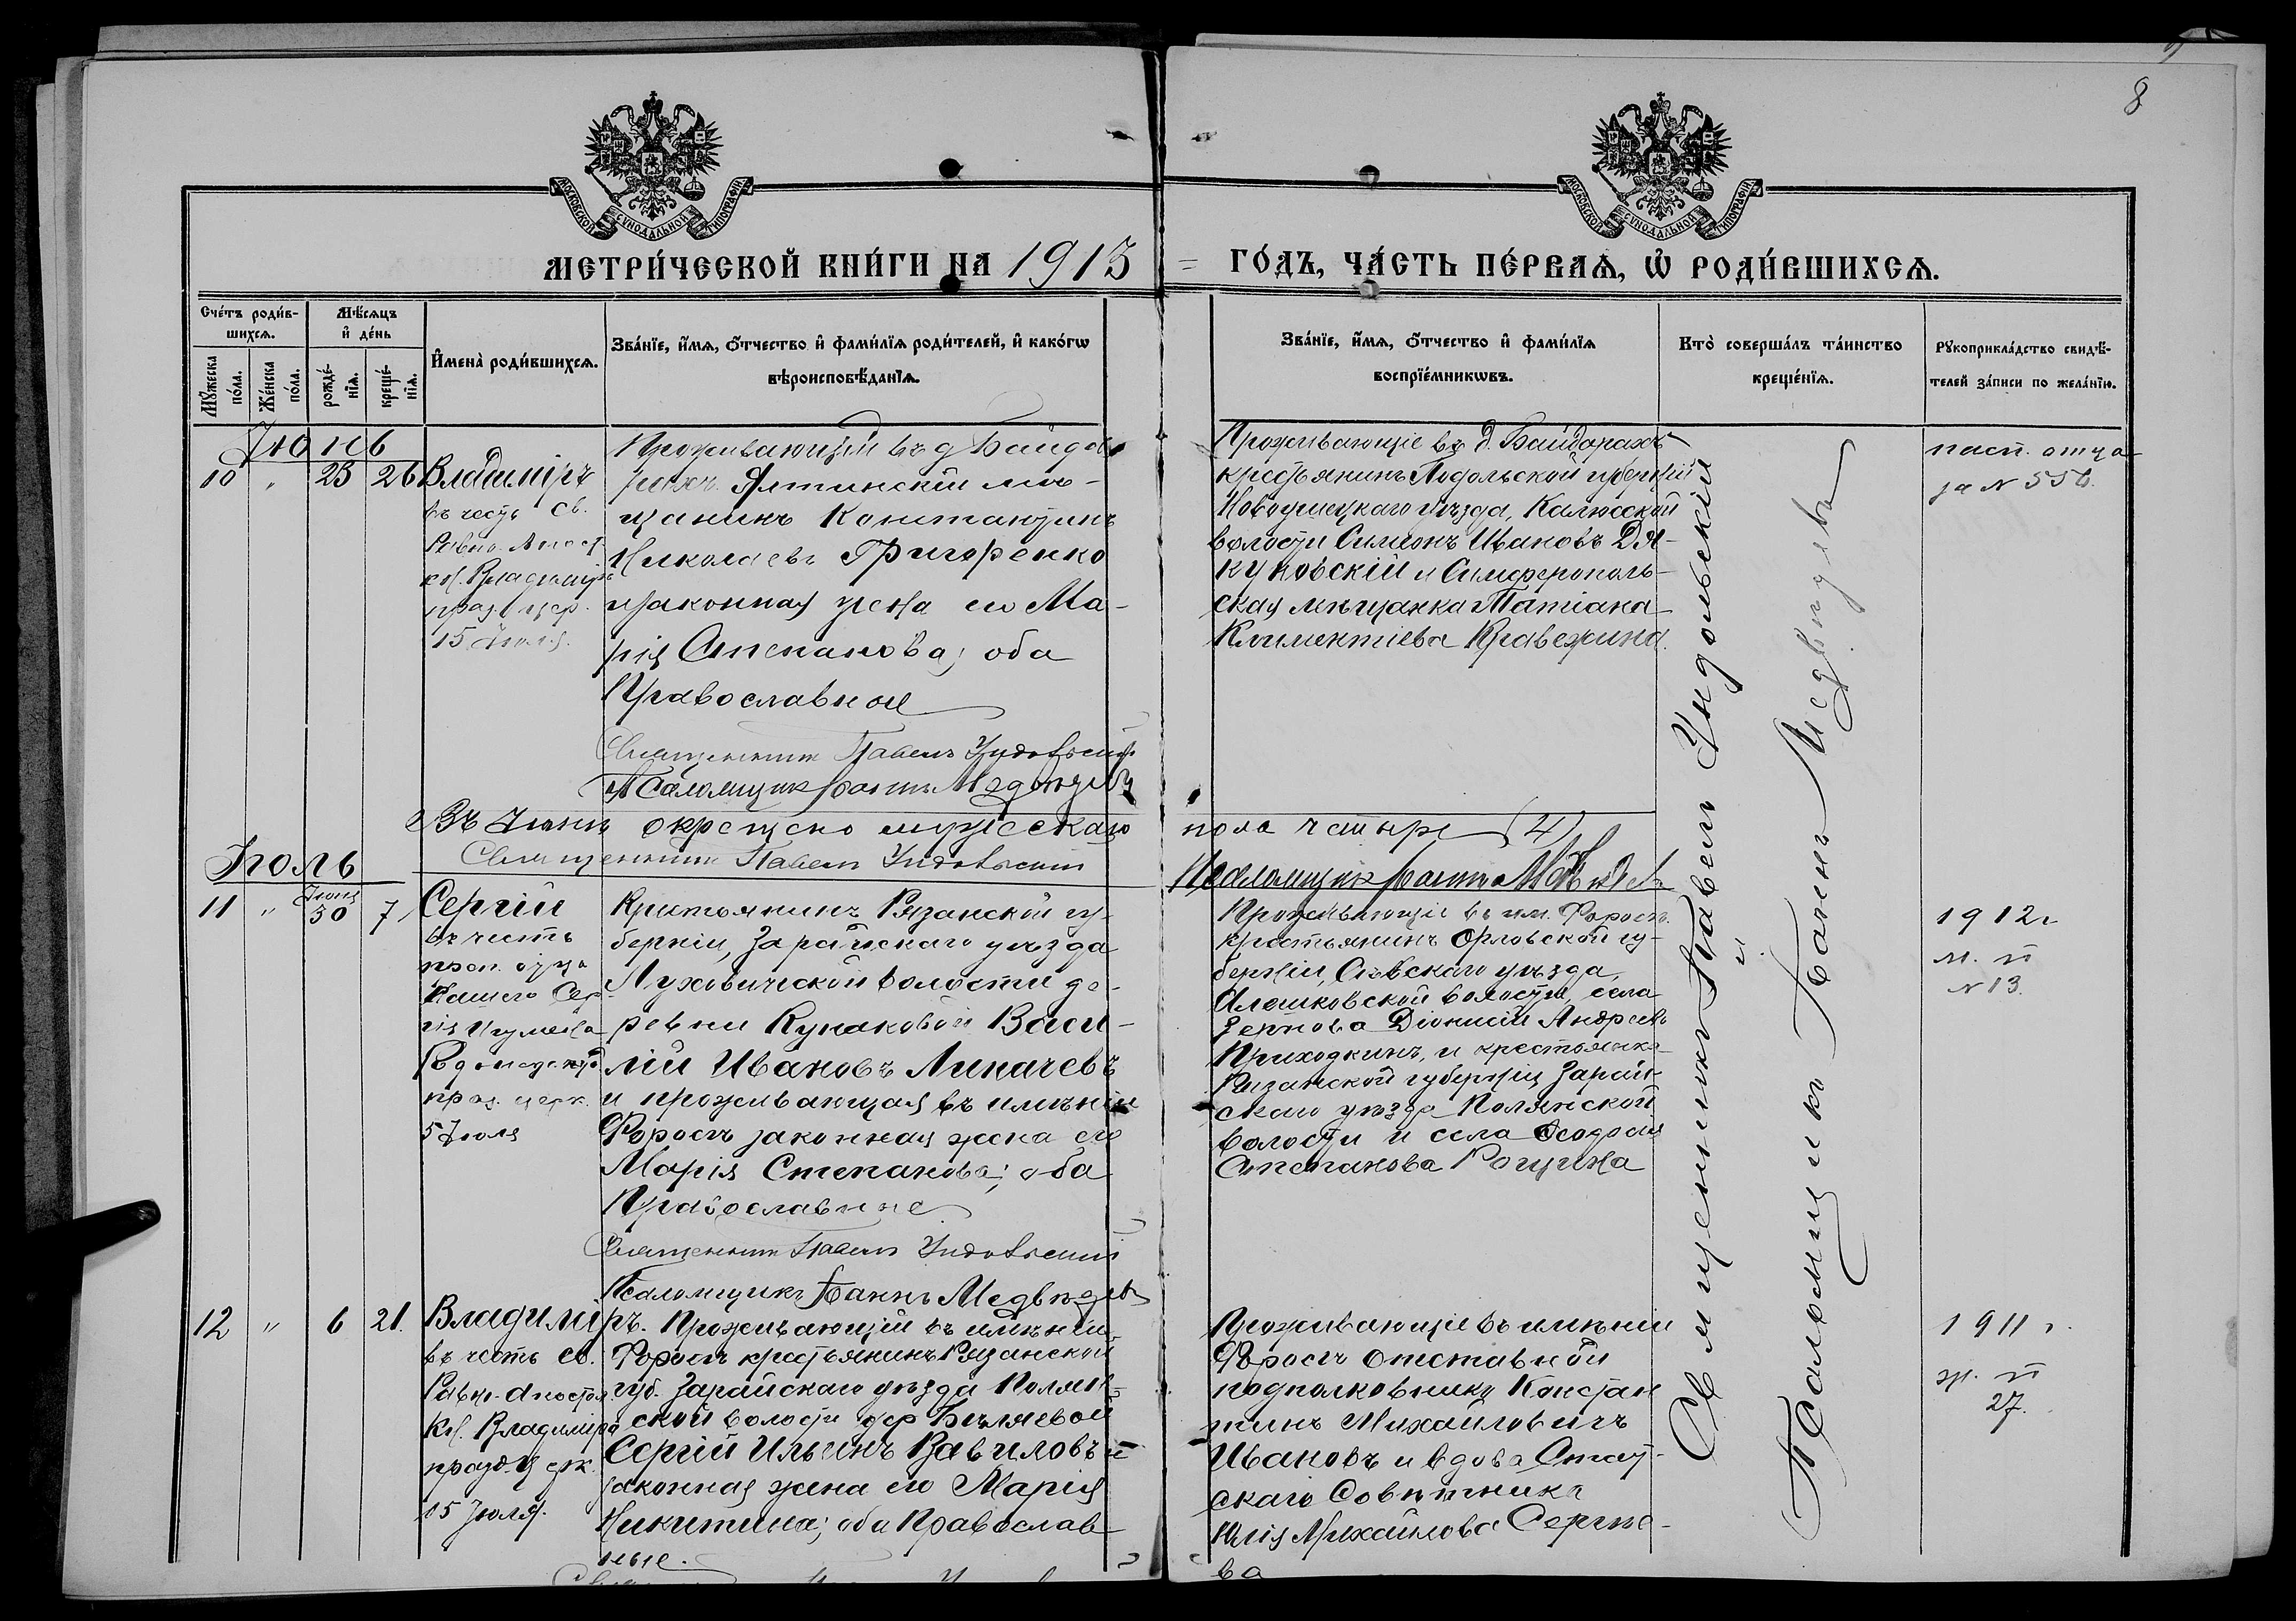 8
МОСКОВСКОЙ СѴНОДАЛЬНОЙ ТИПОГРАФІИ
МОСКОВСКОЙ СѴНОДАЛЬНОЙ ТИПОГРАФІИ
МЕТРИ́ЧЕСКОЙ КНИ́ГИ НА 1913
ГО́ДЪ, ЧА́СТЬ ПЕ́РВАѦ, Ѡ҆ РОДИ́ВШИХСѦ.
Сче́тъ роди́в-
шихсѧ.
Мꙋ́жеска по́ла.
Же́нска по́ла.
Мѣ́сѧцъ
и҆ де́нь
рожде́-
нїѧ.
креще́-
нїѧ.
И҆мена̀ роди́вшихсѧ.
Зва́нїе, и҆́мѧ, ѻ҆́тчество и҆ фами́лїѧ роди́телей, и҆ како́гѡ
вѣроисповѣ́данїѧ.
Зва́нїе, и҆́мѧ, ѻ҆́тчество и҆ фами́лїѧ
воспрїе́мникѡвъ.
Кто̀ соверша́лъ та́инство
креще́нїѧ.
Рꙋкоприкла́дство свидѣ́-
телей за́писи по жела́нїю.
Іюнь
10 " 23 26
Владиміръ
въ честь Св.
Равно-Апост
кн. Владиміра
праз. цер.
15 Іюля.
Проживающій въ д Байда
рахъ Ялтинскій мѣ-
щанинъ Константинъ
Николаевъ Григоренко
и законная жена его Ма-
рія Степанова; оба
Православные
Священникъ Павелъ Ундольскій
Псаломщикъ Іоаннъ Медвѣдевъ
Проживающіе въ д. Байдарахъ
крестьянинъ Подольской губерніи
Новоушицкаго уѣзда, Калюсской
волости Симеонъ Ивановъ Дя-
куновскій и Симферополь-
ская мѣщанка Татіана
Климентіева
пасп. отца
за N 556.
Въ Іюнѣ окрещено мужескаго пола четыре (4)
Священникъ Павелъ Ундольскій
Псаломщикъ Іоаннъ Медвѣдевъ
Іюль
11 " Іюня 30 7
Сергій
въ честь
преп. отца
нашего Сер-
гія Игумена
Радонежскаго
праз. церк.
5 Іюля
Крестьянинъ Рязанской гу-
берніи, Зарайскаго уѣзда
Луховической волости де-
ревни Кунаковой Васи-
лій Ивановъ Липачевъ
и проживающая въ имѣніи
Форосъ законная жена его
Марія Степанова; оба
Православные
Священникъ Павелъ Ундольскій
Псаломщикъ Іоаннъ Медвѣдевъ
Проживающіе въ им. Форосъ
крестьянинъ Орловской гу-
берніи, Сѣвскаго уѣзда,
волости, села
Зернова Діонисій Андреевъ
Приходкинъ, и крестьянка
Рязанской губерніи Зарай-
скаго уѣзда Полянской
волости и села Ѳеодосія
Степанова Рощина
1912 г
м. п
N 13.
12 " 6 21.
Владиміръ.
въ честь св.
Равно-Апостол.
Кн. Владиміра
празд. церк.
15 Іюля.
Проживающій въ имѣніи
Форосъ крестьянинъ Рязанской
губ. Зарайскаго уѣзда Полян-
ской волости дер Бѣляевой
Сергій Ильинъ Вавиловъ и
законная жена его Марія
Никитина; оба Православ-
ные.
Проживающіе въ имѣніи
Форосъ отставной
подполковникъ Констан
тинъ Михайловичъ
Ивановъ и вдова Стат-
скаго Совѣтника
Юлія Михайлова Сергѣе-
ва
1911 г.
ж. п
27.
Священникъ Павелъ Ундольскій
и
Псаломщикъ Іоаннъ Медвѣдевъ